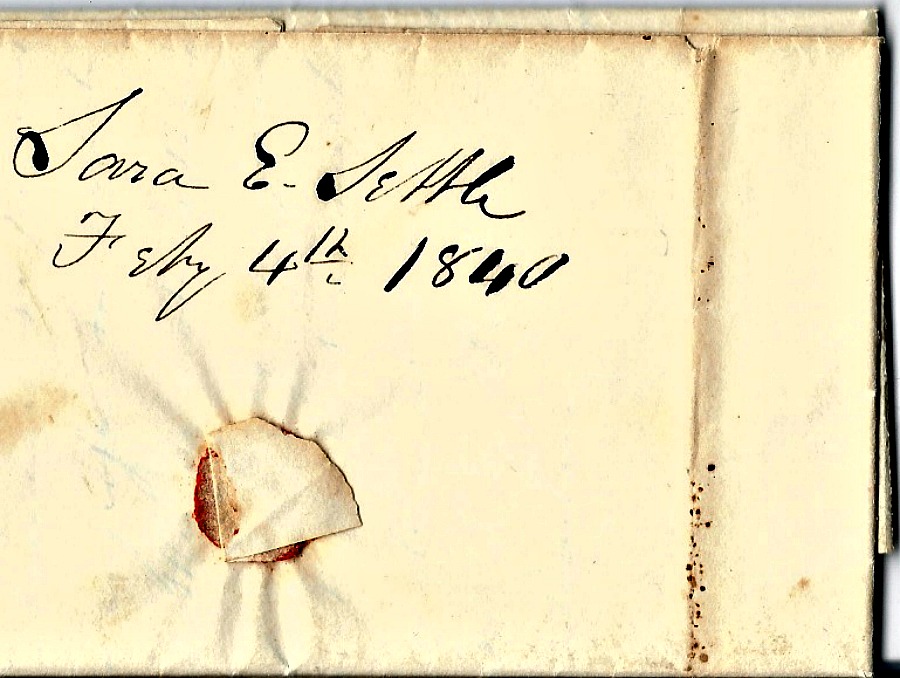 Sara E. Settle
Feby 4th 1840